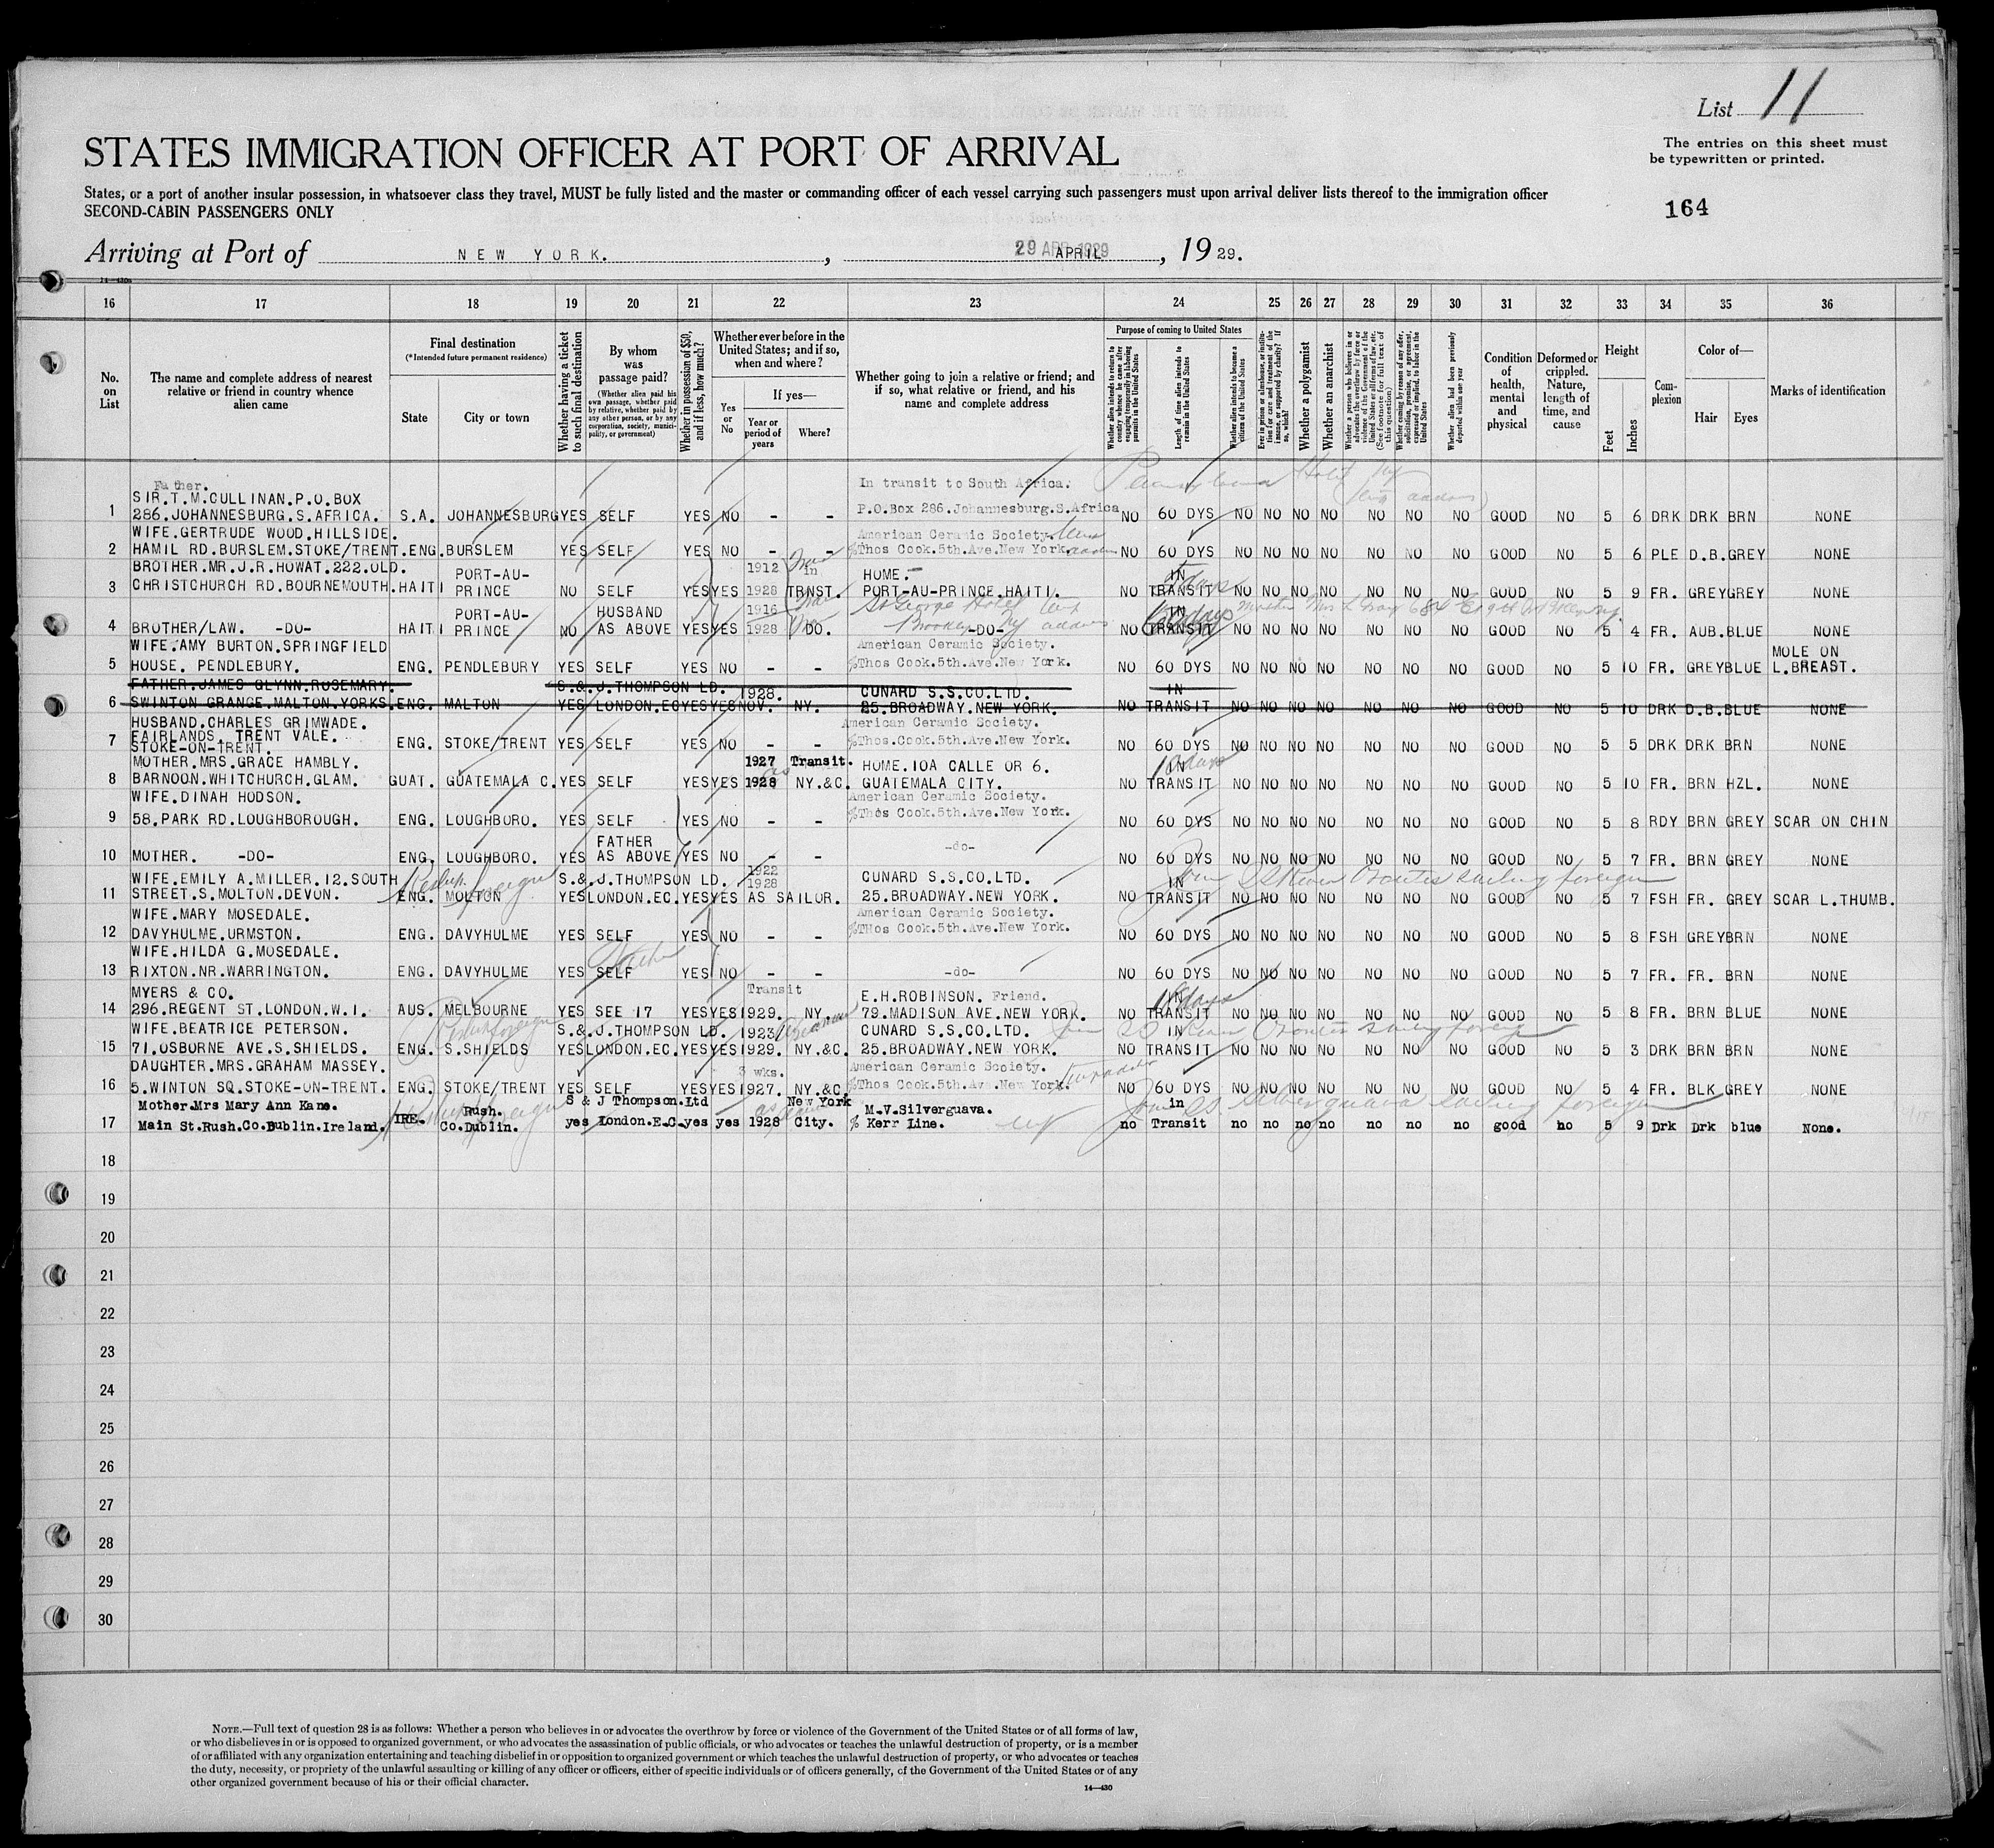 List 11
STATES IMMIGRATION OFFICER AT PORT OF ARRIVAL
The entries on this sheet must
be typewritten or printed.
States, or a port of another insular possession, in whatsoever class they travel, MUST be fully listed and the master or commanding officer of each vessel carrying such passengers must upon arrival deliver lists thereof to the immigration officer
SECOND-CABIN PASSENGERS ONLY
164
Arriving at Port of NEW YORK. , 29 APR 1929 APRIL , 1929.
14—430a
16 17 18 19 20 21 22 23 24 25 26 27 28 29 30 31 32 33 34 35 36
No. on List
The name and complete address of nearest relative or friend in country whence alien came
Final destination
(*Intended future permanent residence)
State City or town
Whether having a ticket to such final destination
By whom was passage paid?
(Whether alien paid his own passage, whether paid by relative, whether paid by any other person, or by any corporation, society, municipality, or government)
Whether in possession of $50, and if less, how much?
Whether ever before in the United States; and if so, when and where?
Yes or No
If yes—
Year or period of years Where?
Whether going to join a relative or friend; and if so, what relative or friend, and his name and complete address
Purpose of coming to United States
Whether alien intends to return to country whence he came after engaging temporarily in laboring pursuits in the United States
Length of time alien intends to remain in the United States
Whether alien intends to become a citizen of the United States
Ever in prison or almshouse, or institution for care and treatment of the insane, or supported by charity? If so, which?
Whether a polygamist
Whether an anarchist
Whether coming by reason of any offer, solicitation, promise, or agreement, expressed or implied, to labor in the United States
Whether alien had been previously deported within one year
Condition of health, mental and physical
Deformed or crippled. Nature, length of time, and cause
Height
Feet Inches
Complexion
Color of—
Hair Eyes
Marks of identification
Father. In transit to South Africa.
SIR.T.M.CULLINAN.P.O.BOX
1 286.JOHANNESBURG.S.AFRICA. S.A. JOHANNESBURG YES SELF YES NO - - P.O.Box 286.Johannesburg.S.Africa NO 60 DYS NO NO NO NO NO NO NO GOOD NO 5 6 DRK DRK BRN NONE
WIFE.GERTRUDE WOOD.HILLSIDE. American Ceramic Society.
2 HAMIL RD.BURSLEM.STOKE/TRENT. ENG. BURSLEM YES SELF YES NO - - %Thos Cook.5th.Ave.New York. NO 60 DYS NO NO NO NO NO NO NO GOOD NO 5 6 PLE D.B. GREY NONE
BROTHER.MR.J.R.HOWAT.222.OLD. PORT-AU- 1912 in HOME. IN
3 CHRISTCHURCH RD.BOURNEMOUTH. HAITI PRINCE NO SELF YES YES 1928 TRNST. PORT-AU-PRINCE.HAITI. NO TRANSIT NO NO NO NO NO NO NO GOOD NO 5 9 FR. GREY GREY NONE
PORT-AU- HUSBAND 1916 St George Hotel IN
4 BROTHER/LAW. -DO- HAITI PRINCE NO AS ABOVE YES YES 1928 DO. -DO- NO TRANSIT NO NO NO NO NO NO NO GOOD NO 5 4 FR. AUB. BLUE NONE
WIFE.AMY BURTON.SPRINGFIELD American Ceramic Society. MOLE ON
5 HOUSE. PENDLEBURY. ENG. PENDLEBURY YES SELF YES NO - - %Thos Cook.5th.Ave.New York. NO 60 DYS NO NO NO NO NO NO NO GOOD NO 5 10 FR. GREY BLUE L.BREAST.
FATHER.JAMES GLYNN.ROSEMARY. S.& J.THOMPSON LD. 1928. CUNARD S.S.CO.LTD. IN
6 SWINTON GRANGE.MALTON.YORKS. ENG. MALTON YES LONDON.EC YES YES NOV. NY. 25.BROADWAY.NEW YORK. NO TRANSIT NO NO NO NO NO NO NO GOOD NO 5 10 DRK D.B. BLUE NONE
HUSBAND.CHARLES GRIMWADE. American Ceramic Society.
FAIRLANDS. TRENT VALE.
7 STOKE-ON-TRENT. ENG. STOKE/TRENT YES SELF YES NO - - %Thos.Cook.5th.Ave.New York. NO 60 DYS NO NO NO NO NO NO NO GOOD NO 5 5 DRK DRK BRN NONE
MOTHER.MRS.GRACE HAMBLY. 1927 Transit. HOME.10A CALLE OR 6. IN
8 BARNOON.WHITCHURCH.GLAM. GUAT. GUATEMALA C. YES SELF YES YES 1928 NY.&C. GUATEMALA CITY. NO TRANSIT NO NO NO NO NO NO NO GOOD NO 5 10 FR. BRN HZL. NONE
WIFE.DINAH HODSON. American Ceramic Society.
9 58.PARK RD.LOUGHBOROUGH. ENG. LOUGHBORO. YES SELF YES NO - - %Thos Cook.5th.Ave.New York. NO 60 DYS NO NO NO NO NO NO NO GOOD NO 5 8 RDY BRN GREY SCAR ON CHIN
FATHER -do-
10 MOTHER. -DO- ENG. LOUGHBORO. YES AS ABOVE YES NO - - NO 60 DYS NO NO NO NO NO NO NO GOOD NO 5 7 FR. BRN GREY NONE
WIFE.EMILY A.MILLER.12.SOUTH S.& J.THOMPSON LD. 1922 1928 CUNARD S.S.CO.LTD. IN
11 STREET.S.MOLTON.DEVON. ENG. MOLTON YES LONDON.EC. YES YES AS SAILOR. 25.BROADWAY.NEW YORK. NO TRANSIT NO NO NO NO NO NO NO GOOD NO 5 7 FSH FR. GREY SCAR L.THUMB.
WIFE.MARY MOSEDALE. American Ceramic Society.
12 DAVYHULME.URMSTON. ENG. DAVYHULME YES SELF YES NO - - %THos Cook.5th.Ave.New York. NO 60 DYS NO NO NO NO NO NO NO GOOD NO 5 8 FSH GREY BRN NONE
WIFE.HILDA G.MOSEDALE.
13 RIXTON.NR.WARRINGTON. ENG. DAVYHULME YES SELF YES NO - - -do- NO 60 DYS NO NO NO NO NO NO NO GOOD NO 5 7 FR. FR. BRN NONE
MYERS & CO. Transit E.H.ROBINSON. Friend. IN
14 296.REGENT ST.LONDON.W.1. AUS. MELBOURNE YES SEE 17 YES YES 1929. NY. 79.MADISON AVE.NEW YORK. NO TRANSIT NO NO NO NO NO NO NO GOOD NO 5 8 FR. BRN BLUE NONE
WIFE.BEATRICE PETERSON. S.& J.THOMPSON LD. 1923 CUNARD S.S.CO.LTD. IN
15 71.OSBORNE AVE.S.SHIELDS. ENG. S.SHIELDS YES LONDON.EC. YES YES 1929. NY.&C. 25.BROADWAY.NEW YORK. NO TRANSIT NO NO NO NO NO NO NO GOOD NO 5 3 DRK BRN BRN NONE
DAUGHTER.MRS.GRAHAM MASSEY. 3 wks. American Ceramic Society.
16 5.WINTON SQ.STOKE-ON-TRENT. ENG. STOKE/TRENT YES SELF YES YES 1927. NY.&C. %Thos Cook.5th.Ave.New York. NO 60 DYS NO NO NO NO NO NO NO GOOD NO 5 4 FR. BLK. GREY NONE
Mother.Mrs Mary Ann Kane. Rush. S & J Thompson.Ltd New York M.V.Silverguava. in
17 Main St.Rush.Co.Dublin.Ireland. IRE. Co.Dublin. yes London.E.C. yes yes 1928 City. % Kerr Line. no Transit no no no no no no no good no 5 9 Drk Drk blue None.
18
19
20
21
22
23
24
25
26
27
28
29
30
NOTE.—Full text of question 28 is as follows: Whether a person who believes in or advocates the overthrow by force or violence of the Government of the United States or of all forms of law,
or who disbelieves in or is opposed to organized government, or who advocates the assassination of public officials, or who advocates or teaches the unlawful destruction of property, or is a member
of or affiliated with any organization entertaining and teaching disbelief in or opposition to organized government or which teaches the unlawful destruction of property, or who advocates or teaches
the duty, necessity, or propriety of the unlawful assaulting or killing of any officer or officers, either of specific individuals or of officers generally, of the Government of the United States or of any
other organized government because of his or their official character.
14—430